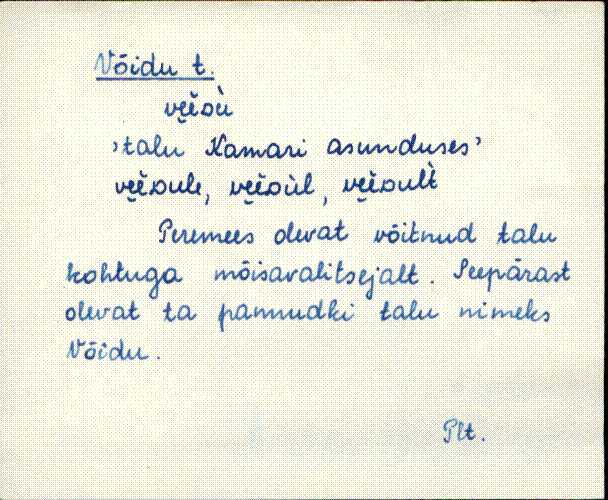 Võidu t.
ve̮i̬ᴅù
›talu Kamari asunduses›
ve̮i̬ᴅule, ve̮i̬ᴅùl, ve̮i̬ᴅult̀
Peremees olevat võitnud talu
kohtuga mõisavalitsejalt. Seepärast
olevat ta pannudki talu nimeks
Võidu.
Plt.